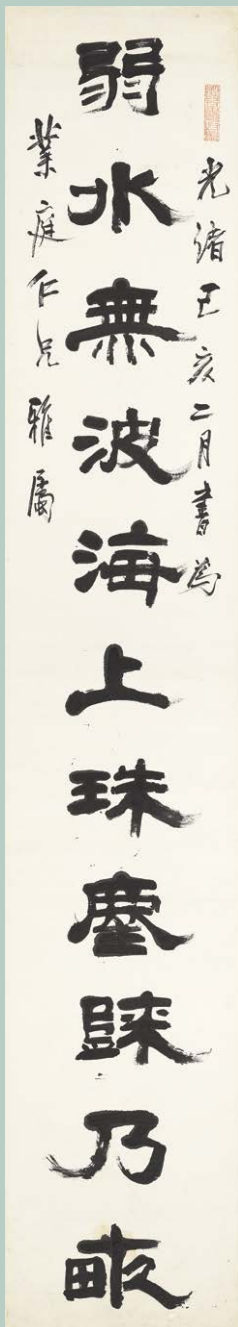 光緒己亥二月書為
弱水無波海上珠塵乃
業庭仁兄雅屬